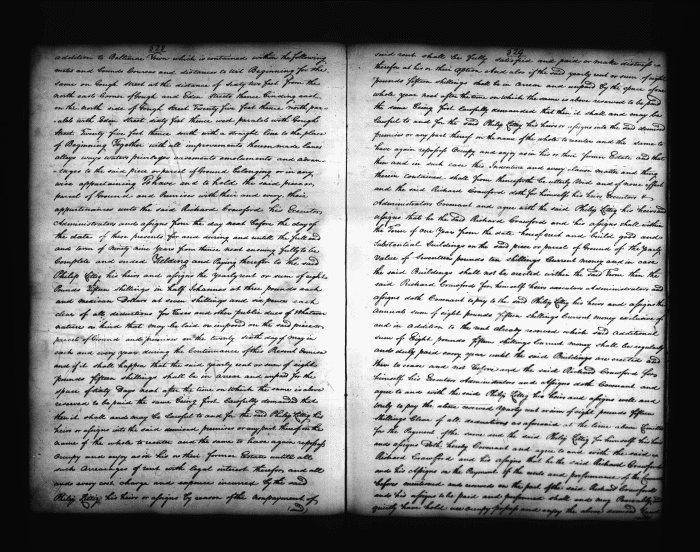 328
addition to Baltimore Town which is contained within the following
metes and bounds Courses and distances to wit Beginning for the
same on Gough Street at the distance of sixty two feet from the
north east Corner of Gough and Eden Streets thence binding east
on the north side of Gough Street Twenty five feet thence north par-
alel with Eden Street sixty feet thence west paralel with Gough
Street Twenty five feet thence south with a straight line to the place
of Beginning Together with all improvements thereon made lanes
alleys ways waters privileges easements emoluments and advan-
-tages to the said piece or parcel of Ground belonging or in any
wise appertaining To have and to hold the said piece or
parcel of Ground and Premises with their and every their
appurtenances unto the said Richard Crawford his Executors
Administrators and assigns from the day next before the day of
the date of these presents for and during and untill the full end
and term of Ninety nine Years from thence next ensuing fully to be
Complete and ended Yielding and Paying therefor to the said
Philip Littig his heirs and assigns the Yearly rent or sum of eight
Pounds fifteen shillings in half Johannes at three pounds each
and mexican Dollars at seven shillings and six pence each
clear of all deductions for Taxes and other public dues of whatever
nature or kind that may be laid or imposed on the said piece or
parcel of Ground and premises on the twenty sixth day of may in
each and every year during the Continuance of this Present Demise
and if it shall happen that the said yearly rent or sum of eight
pounds fifteen shillings shall be in arrear and unpaid for the
space of sixty Days next after the time on which the same is above
reserved to be paid the same being first lawfully demanded that
then it shall and may be lawful to and for the said Philip Littig his
heirs or assigns into the said demised premises or any part thereof in the
name of the whole to reenter and the same to have again repossess
Occupy and enjoy as in his or their former Estate untill all
such Arrearages of rent with legal interest therefor and all
and every cost charge and expence incurred by the said
Philip Littig his heirs or assigns by reason of the nonpayment of
said
329
said rent shall be fully satisfied and paid or make distress
therefor at his or their Option And also if the said yearly rent or sum of eight
pounds fifteen shillings shall be in arrear and unpaid by the space of one
whole year next after the time on which the same is above reserved to be paid
the same being first lawfully demanded that then it shall and may be
lawful to and for the said Philip Littig his heirs or assigns into the said demised
premises or any part thereof in the name of the whole to reenter and the same to
have again repossess Occupy and enjoy as in his or their former Estate and that
then and in such case this Indenture and every clause matter and thing
therein contained shall from thenceforth be utterly void and of none effect
and the said Richard Crawford doth for himself his heirs Executors &
Administrators Covenant and agree with the said Philip Littig his heirs and
assigns that he the said Richard Crawford and his assigns shall within
the Term of one Year from the date hereof erect and build good and
Substantial Buildings on the said piece or parcel of Ground of the yearly
Value of Seventeen pounds ten shillings Current money and in case
the said Buildings shall not be erected within the said Term then the
said Richard Crawford for himself his heirs executors Administrators and
assigns doth Covenant to pay to the said Philip Littig his heirs and assigns the
Annual sum of eight pounds fifteen shillings Current money exclusive of
and in addition to the rent already reserved which said additional
sum of Eight pounds fifteen shillings Current money shall be regularly
and duly paid every year until the said Buildings are erected and
then to cease and not before and the said Richard Crawford for
himself his Executors Administrators and Assigns doth Covenant and
agree to and with the said Philip Littig his heirs and assigns well and
truly to pay the above reserved yearly rent or sum of eight pounds fifteen
shillings Clear of all deductions as aforesaid at the time above limited
for the Payment of the same and the said Philip Littig for himself his heirs
and assigns Doth hereby Covenant and agree to and with the said
Richard Crawford and his Assigns that he the said Richard Crawford
and his Assigns on the Payment of the rents and performance of the Covenants
before mentioned and reserved on the part of the said Richard Crawford
and his assigns to be paid and performed shall and may Peaceably and
quietly have hold use occupy possess and enjoy the above demised